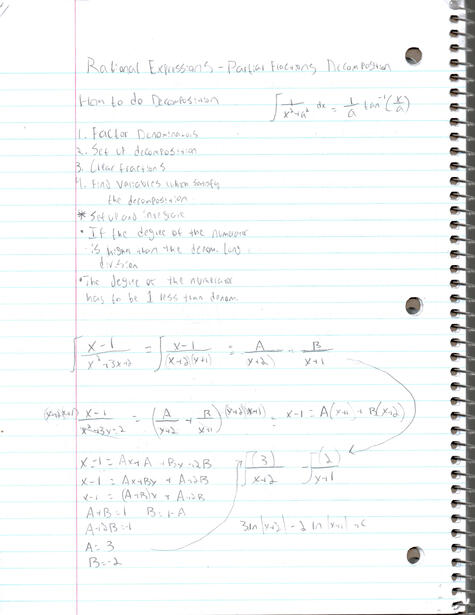 Rational Expressions - Partial Fractions Decomposition
How to do Decomposition
∫ 1/(x²+a²) dx = 1/a tan⁻¹(x/a)
1. Factor Denominators
2. Set up decomposition
3. Clear fractions
4. Find Variables which satisfy
the decomposition
* Set up and integrate
• If the degree of the numerator
is higher than the denom. long
division
• The degree of the numerator
has to be 1 less than denom.
∫ (x-1)/(x²+3x+2) = ∫ (x-1)/((x+2)(x+1)) = A/(x+2) + B/(x+1)
(x+2)(x+1) (x-1)/(x²+3x+2) = (A/(x+2) + B/(x+1)) (x+2)(x+1) = x-1 = A(x+1) + B(x+2)
x-1 = Ax+A + Bx+2B
x-1 = Ax+Bx + A+2B
x-1 = (A+B)x + A+2B
A+B=1 B=1-A
A+2B=-1
A=3
B=-2
∫ (3)/(x+2) - ∫ (2)/(x+1)
3ln|x+2| - 2 ln|x+1| + c